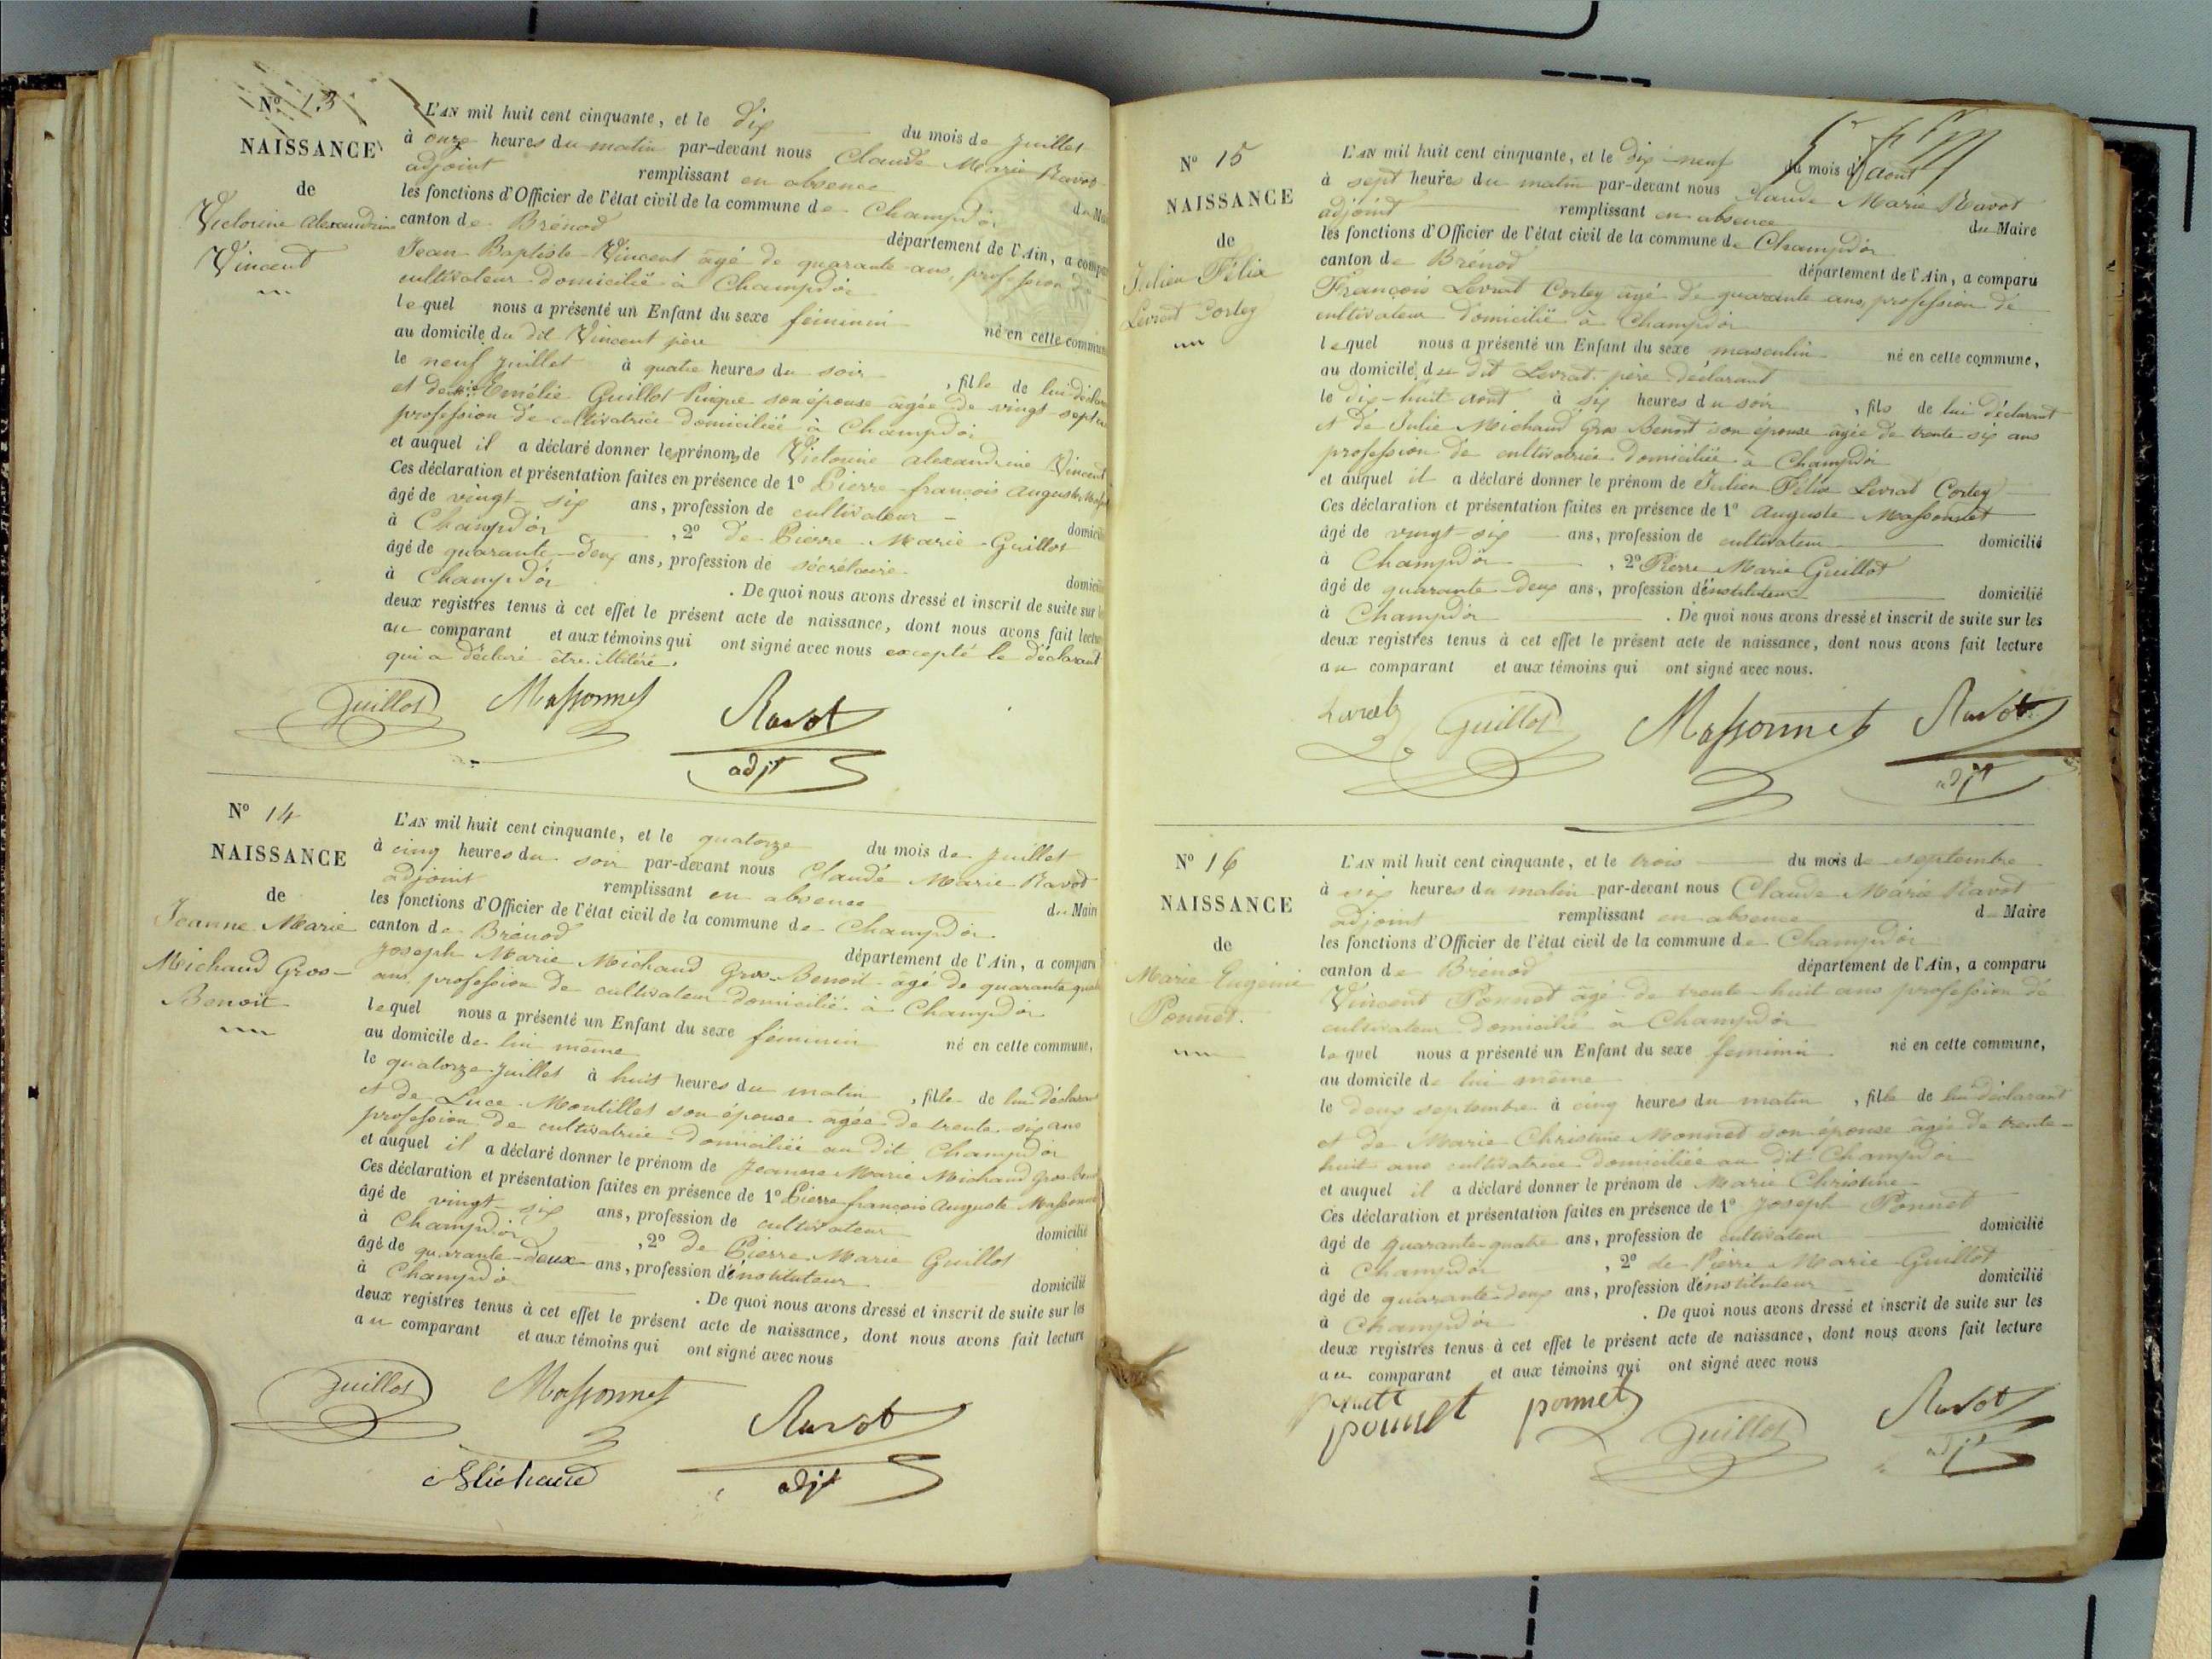 Nº 13
NAISSANCE
de
Victorine Alexandrine
Vincent
L'AN mil huit cent cinquante, et le dix du mois de juillet
à onze heures du matin par-devant nous Claude Marie Ravot
adjoint remplissant en absence du Maire
les fonctions d'Officier de l'état civil de la commune de Champdor
canton de Brénod département de l'Ain, a comparu
Jean Baptiste Vincent âgé de quarante ans, profession de
cultivateur domicilié à Champdor
lequel nous a présenté un Enfant du sexe féminin né en cette commune
au domicile du dit Vincent père
le neuf juillet à quatre heures du soir, fille de lui déclarant
et de Emélie Guillot Pingue son épouse âgée de vingt-sept ans
profession de cultivatrice domiciliée à Champdor
et auquel il a déclaré donner les prénoms de Victorine Alexandrine Vincent
Ces déclaration et présentation faites en présence de 1º Pierre françois Auguste
âgé de vingt-six ans, profession de cultivateur domicilié
à Champdor, 2º de Pierre Marie Guillot
âgé de quarante-deux ans, profession de sécrétaire domicilié
à Champdor. De quoi nous avons dressé et inscrit de suite sur les
deux registres tenus à cet effet le présent acte de naissance, dont nous avons fait lecture
au comparant et aux témoins qui ont signé avec nous excepté le déclarant
qui a déclaré être illitéré.
Guillot Massonnet Ravot
adjt
Nº 14
NAISSANCE
de
Jeanne Marie
Michaud Gros-
Benoit
L'AN mil huit cent cinquante, et le quatorze du mois de juillet
à cinq heures du soir par-devant nous Claude Marie Ravot
adjoint remplissant en absence du Maire
les fonctions d'Officier de l'état civil de la commune de Champdor
canton de Brénod département de l'Ain, a comparu
Joseph Marie Michaud Gros-Benoit âgé de quarante quatre
ans, profession de cultivateur domicilié à Champdor
lequel nous a présenté un Enfant du sexe féminin né en cette commune,
au domicile de lui même
le quatorze juillet à huit heures du matin, fille de lui déclarant
et de Luce Montillet son épouse âgée de trente-six ans
profession de cultivatrice domiciliée au dit Champdor
et auquel il a déclaré donner le prénom de Jeanne Marie Michaud Gros-Benoit
Ces déclaration et présentation faites en présence de 1º Pierre françois Auguste Massonnet
âgé de vingt-six ans, profession de cultivateur domicilié
à Champdor, 2º de Pierre Marie Guillot
âgé de quarante-deux ans, profession d'instituteur domicilié
à Champdor. De quoi nous avons dressé et inscrit de suite sur les
deux registres tenus à cet effet le présent acte de naissance, dont nous avons fait lecture
au comparant et aux témoins qui ont signé avec nous
Guillot Massonnet Ravot
Michaud adjt
Nº 15
NAISSANCE
de
Julien Félix
Levrat Cortey
L'AN mil huit cent cinquante, et le dix-neuf du mois d'aout
à sept heures du matin par-devant nous Claude Marie Ravot
adjoint remplissant en absence du Maire
les fonctions d'Officier de l'état civil de la commune de Champdor
canton de Brénod département de l'Ain, a comparu
François Levrat Cortey âgé de quarante ans, profession de
cultivateur domicilié à Champdor
lequel nous a présenté un Enfant du sexe masculin né en cette commune,
au domicile du dit Levrat père déclarant
le dix-huit aout à six heures du soir, fils de lui déclarant
et de Julie Michaud Gros Benoit son épouse âgée de trente six ans
profession de cultivatrice domiciliée à Champdor
et auquel il a déclaré donner le prénom de Julien Félix Levrat Cortey
Ces déclaration et présentation faites en présence de 1º Auguste Massonnet
âgé de vingt-six ans, profession de cultivateur domicilié
à Champdor, 2º Pierre Marie Guillot
âgé de quarante-deux ans, profession d'instituteur domicilié
à Champdor. De quoi nous avons dressé et inscrit de suite sur les
deux registres tenus à cet effet le présent acte de naissance, dont nous avons fait lecture
au comparant et aux témoins qui ont signé avec nous.
Guillot Massonnet Ravot
adjt
Nº 16
NAISSANCE
de
Marie Eugénie
Ponnet.
L'AN mil huit cent cinquante, et le trois du mois de septembre
à six heures du matin par-devant nous Claude Marie Ravot
adjoint remplissant en absence d Maire
les fonctions d'Officier de l'état civil de la commune de Champdor
canton de Brénod département de l'Ain, a comparu
Vincent Ponnet âgé de trente-huit ans profession de
cultivateur domicilié à Champdor
lequel nous a présenté un Enfant du sexe féminin né en cette commune,
au domicile de lui même
le deux septembre à cinq heures du matin, fille de lui déclarant
et de Marie Christine Monnet son épouse âgée de trente-
huit ans cultivatrice domiciliée au dit Champdor
et auquel il a déclaré donner le prénom de Marie Christine
Ces déclaration et présentation faites en présence de 1º Joseph Ponnet
âgé de quarante-quatre ans, profession de cultivateur domicilié
à Champdor, 2º de Pierre Marie Guillot
âgé de quarante-deux ans, profession d'instituteur domicilié
à Champdor. De quoi nous avons dressé et inscrit de suite sur les
deux registres tenus à cet effet le présent acte de naissance, dont nous avons fait lecture
au comparant et aux témoins qui ont signé avec nous
ponnet ponnet Guillot Ravot
adjt